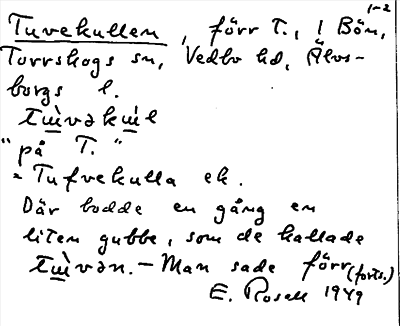 1-2
Tuvekullen, förr T., i Bön,
Torrskogs sn, Vedbo hd, Älvs-
borgs l.
tɯ̀vəkɯ̀l
"på T."
= Tufvekulla ek.
Där bodde en gång en
liten gubbe, som de kallade
tɯ̀vən. – Man sade förr (forts.)
E. Rosell 1949